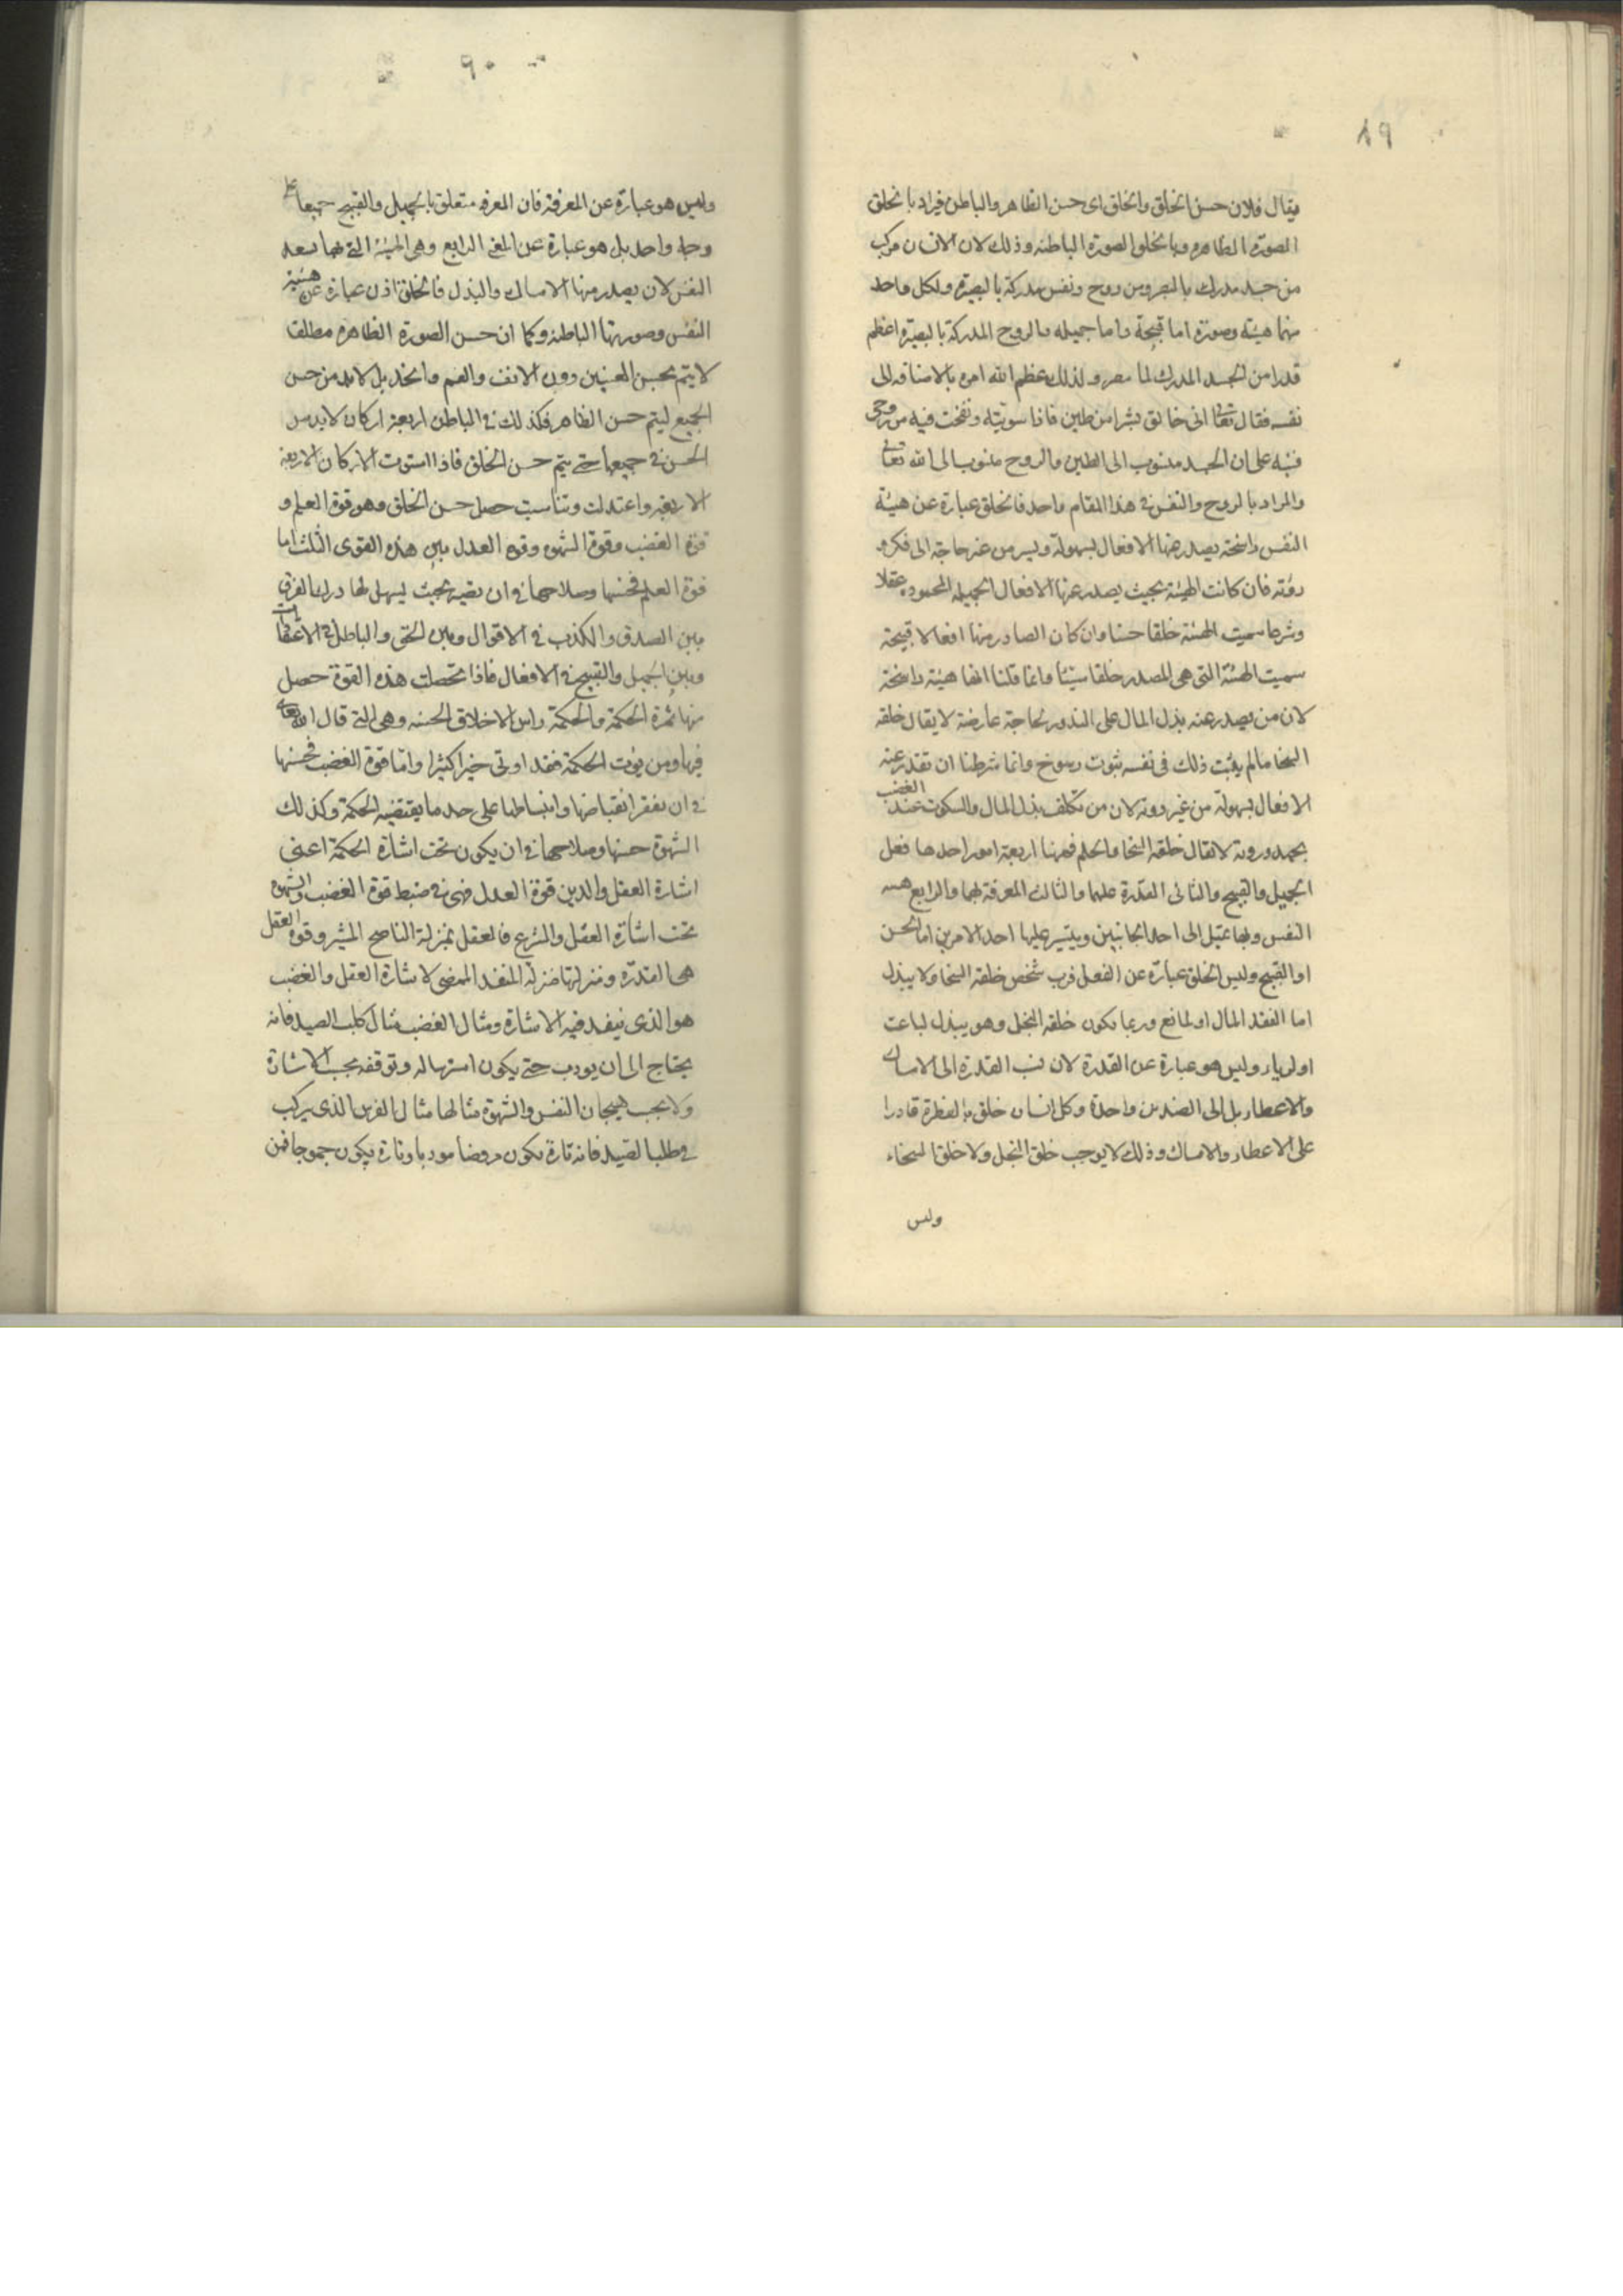 ٨٩
يقال فلان حسن الخلق والخلق اى حسن الظاهر والباطن فيراد بالخلق
الصورة الظاهره وبالخلق الصورة الباطنه وذلك لان الانسان مركب
من جسد مدرك بالبصر ومن روح ونفس مدركة بالبصيرة ولكل واحد
منهما هيئة وصورة اما قبيحة واما جميله والروح المدركة بالبصيرة اعظم
قدرا من الجسد المدرك لذلك عظم الله امره بالاضافه الى
نفسه فقال تعالى انى خالق بشرا من طين فاذا سويته ونفخت فيه من روحى
فنبه على ان الجسد منسوب الى الطين والروح منسوب الى الله تعالى
والمراد بالروح والنفس فى هذا المقام واحد فالخلق عبارة عن هيئة
النفس راسخة يصدر عنها الافعال بسهولة ويسر من غير حاجة الى فكر و
روية فان كانت الهيئة بحيث يصدر عنها الافعال الجميلة المحموده عقلا
وشرعا سميت الهيئة خلقا حسنا وان كان الصادر منها افعالا قبيحة
سميت الهيئة التى هى المصدر خلقا سيئا وانما قلنا انها هيئة راسخة
لان من يصدر عنه بذل المال على الندور لحاجة عارضة لا يقال خلقه
السخا ما لم يثبت ذلك فى نفسه ثبوت رسوخ وانما شرطنا ان تقدر عنه
الافعال بسهولة من غير روية لان من تكلف بذل المال والسكوت عند الغضب
بجهد وروية لا يقال خلقه السخا والحلم فههنا اربعة امور احدها فعل
الجميل والقبيح والثانى القدرة عليهما والثالث المعرفة بهما والرابع هيئة
النفس وبها تميل الى احد الجانبين ويتيسر عليها احد الامرين اما الحسن
او القبيح وليس الخلق عبارة عن الفعل فرب شخص خلقه السخا ولا يبذل
اما لفقد المال او لمانع وربما يكون خلقه البخل وهو يبذل لباعث
او لرياء وليس هو عبارة عن القدرة لان نسبة القدرة الى الامساك
والاعطاء بل الى الضدين واحدة وكل انسان خلق بالفطرة قادرا
على الاعطاء والامساك وذلك لا يوجب خلق البخل ولا خلق السخاء
وليس
٩٠
وليس هو عبارة عن المعرفة فان المعرفه متعلق بالجميل والقبيح جميعا على
وجه واحد بل هو عبارة عن المعنى الرابع وهى الهيئة التى بها تستعد
النفس لان يصدر منها الامساك والبذل فالخلق اذن عبارة عن هيئة
النفس وصورتها الباطنه وكما ان حسن الصورة الظاهره مطلقا
لا يتم بحسن العينين دون الانف والفم والخد بل لا بد من حسن
الجميع ليتم حسن الظاهر فكذلك فى الباطن اربعة اركان لا بد من
الحسن فى جميعها حتى يتم حسن الخلق فاذا استوت الاركان الاربعة
الاربعه واعتدلت وتناسبت حصل حسن الخلق وهو قوة العلم و
قوة الغضب وقوة الشهوه وقوه العدل بين هذه القوى الثلث اما
قوة العلم فحسنها وصلاحها فى ان تصير بحيث يسهل لها درك الفرق
بين الصدق والكذب فى الاقوال وبين الحق والباطل فى الاعتقادات
وبين الجميل والقبيح فى الافعال فاذا تحصلت هذه القوة حصل
منها ثمرة الحكمة والحكمة راس الاخلاق الحسنه وهى التى قال الله تعالى
فيها ومن يؤت الحكمة فقد اوتى خيرا كثيرا واما قوة الغضب فحسنها
فى ان انقباضها وانبساطها على حد ما يقتضيه الحكمة وكذلك
الشهوة حسنها وصلاحها فى ان يكون تحت اشارة الحكمة اعنى
اشارة العقل والدين قوة العدل فهى فى ضبط قوة الغضب والشهوه
تحت اشارة العقل والشرع فالعقل بمنزلة الناصح المشير وقوة العقل
هى القدرة ومنزلتها منزلة المنفذ الممضى لاشارة العقل والغضب
هو الذى ينفذ فيه الاشارة ومثال الغضب مثال كلب الصيد فانه
يحتاج الى ان يودب حتى يكون استرساله وتوقفه بحسب الاشارة
ولا بحسب هيجان النفس والشهوة مثالها مثال الفرس الذى يركب
فى طلب الصيد فانه تارة يكون مروضا مودبا وتارة يكون جموحا فمن